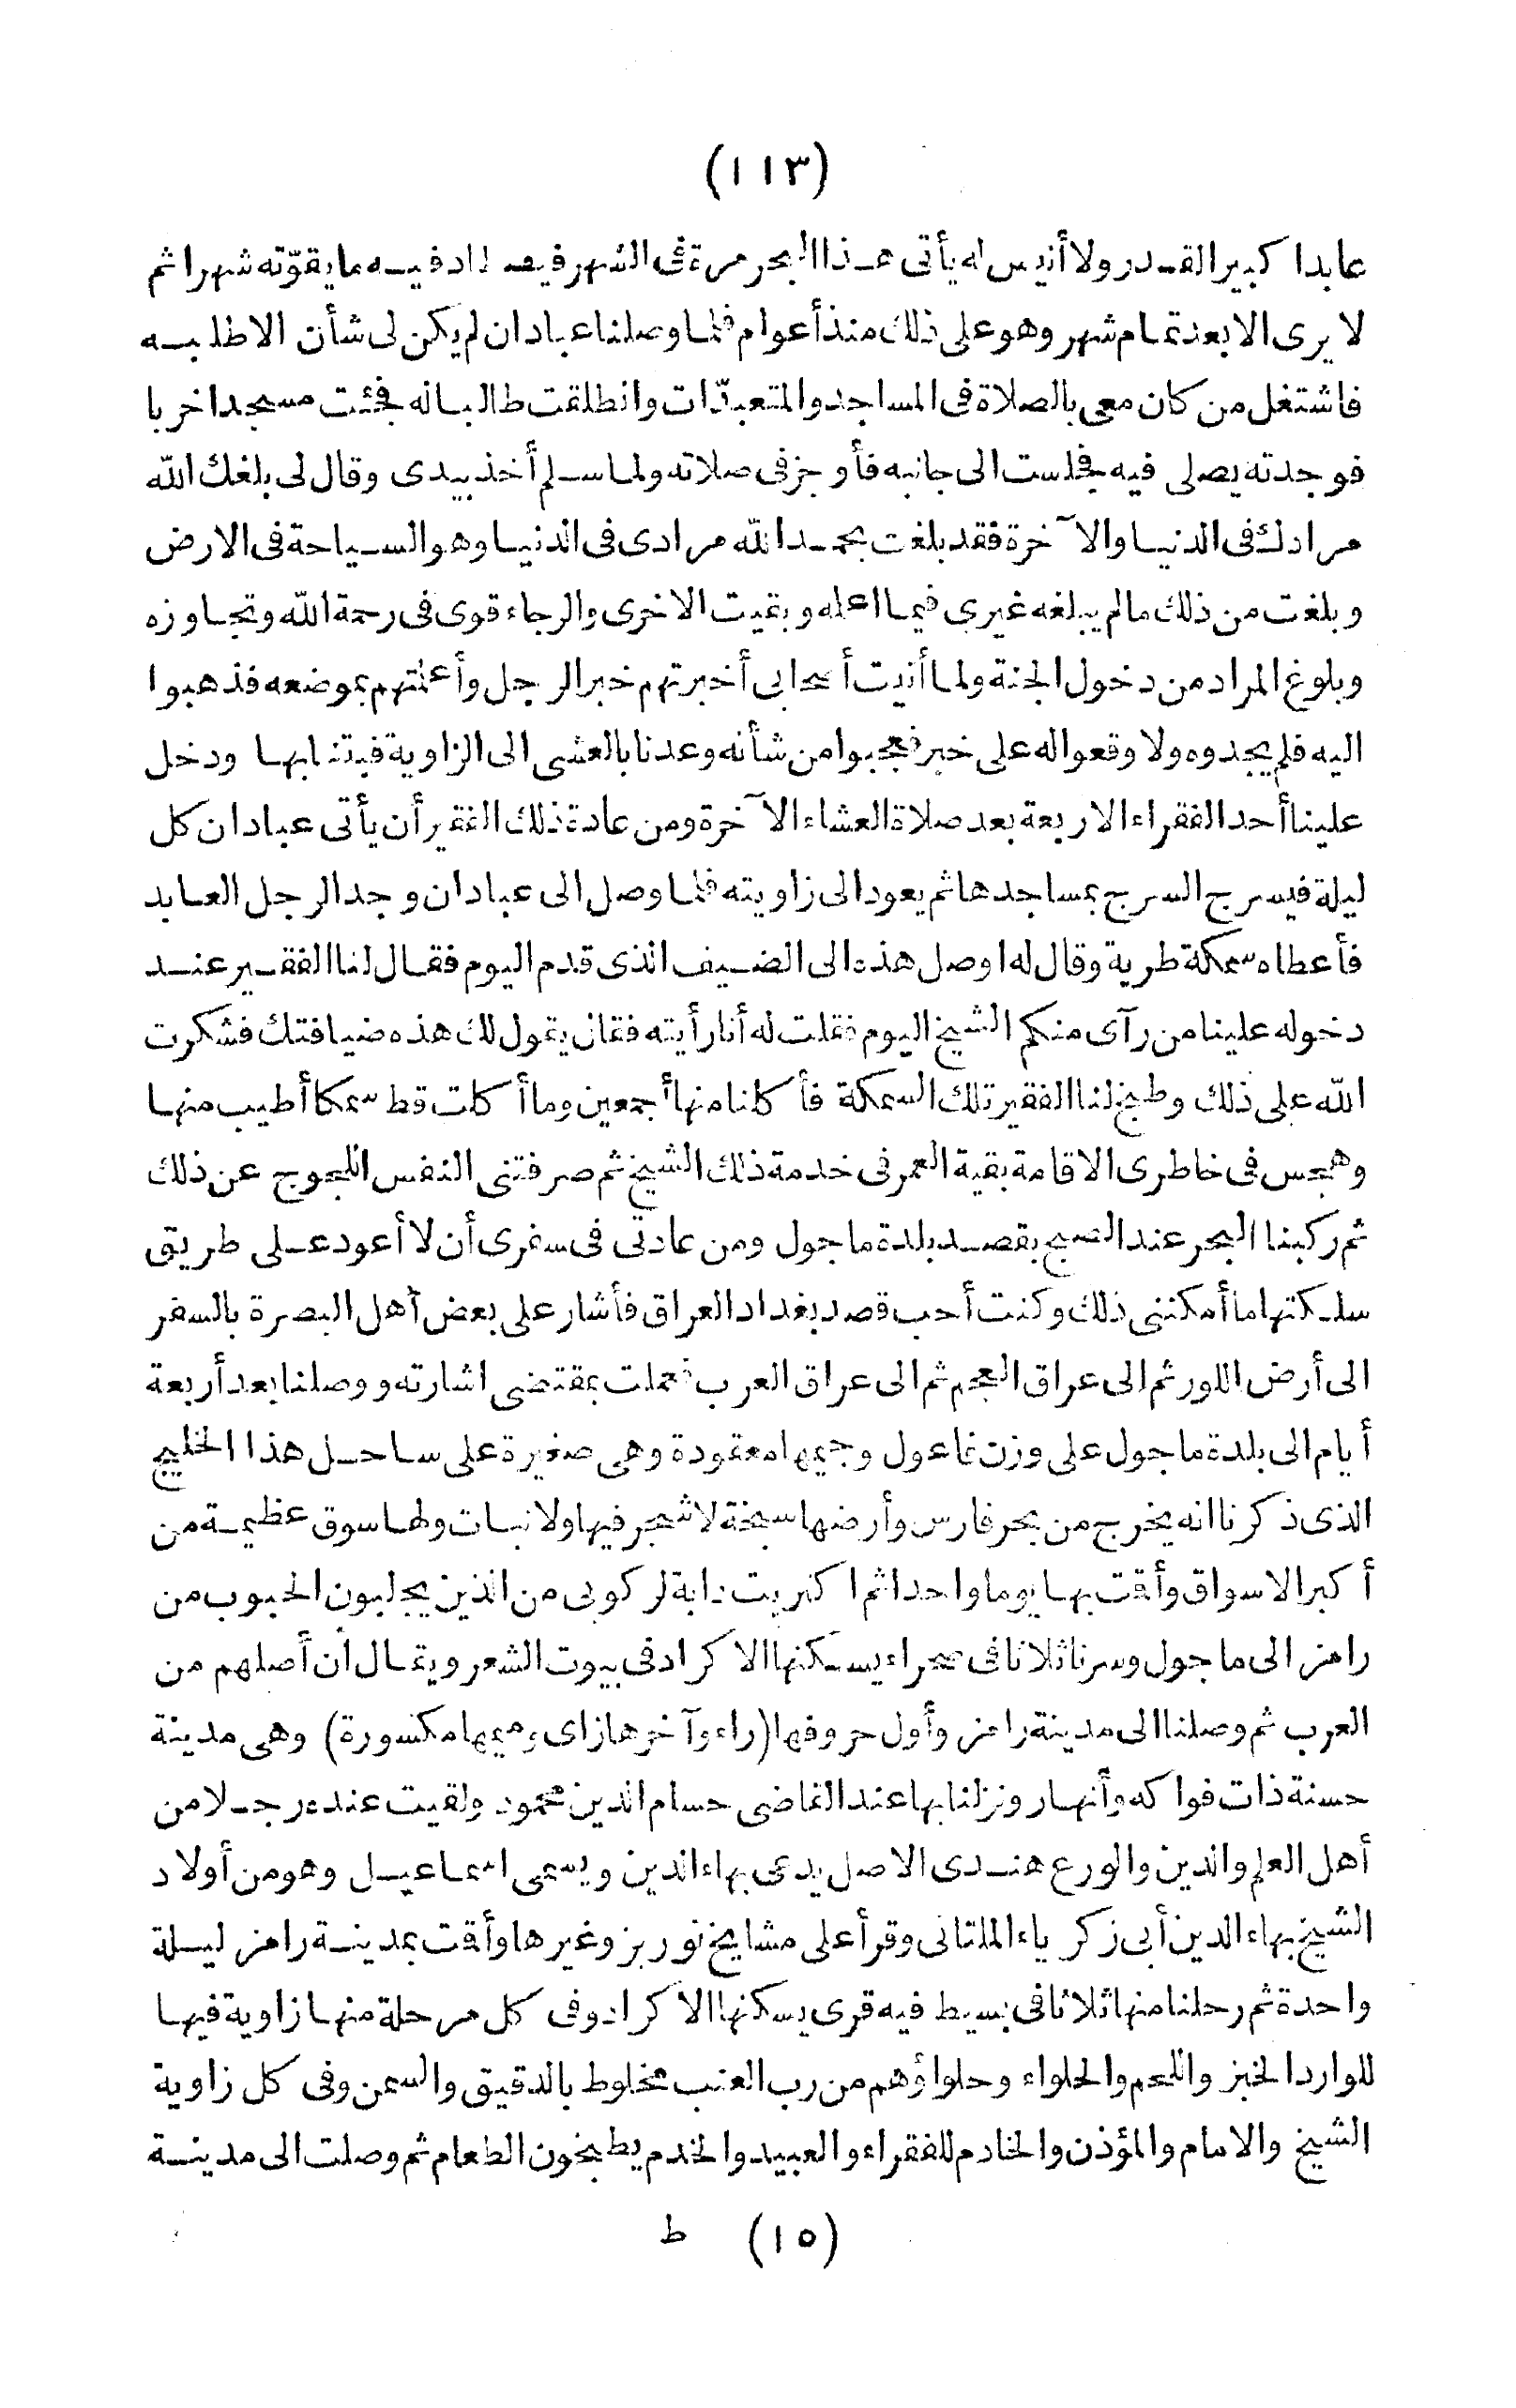 (١١٣)
عابدا كبير القدر ولا أنيس له يأتى هذا البحر مرة فى الشهر فيصطاد فيه ما يقوّته شهرا ثم
لا يرى الا بعد تمام شهر وهو على ذلك منذ أعوام فلما وصلنا عبادان لم يكن لى شأن الا طلبه
فاشتغل من كان معى بالصلاة فى المساجد والمتعبدّات وانطلقت طالبا له فجئت مسجدا خربا
فوجدته يصلى فيه فجلست الى جانبه فأوجز فى صلاته ولما سلم أخذ بيدى وقال لى بلغك الله
مرادك فى الدنيا والآخرة فقد بلغت بحمد الله مرادى فى الدنيا وهو السياحة فى الارض
وبلغت من ذلك ما لم يبلغه غيرى فيما اعلمه وبقيت الاخرى والرجاء قوى فى رحمة الله وتجاوزه
وبلوغ المراد من دخول الجنة ولما أتيت أصحابى أخبرتهم خبر الرجل وأعلمتهم بموضعه فذهبوا
اليه فلم يجدوه ولا وقعوا له على خبر فعجبوا من شأنه وعدنا بالعشى الى الزاوية فبتنا بها ودخل
علينا أحد الفقراء الاربعة بعد صلاة العشاء الآخرة ومن عادة ذلك الفقير أن يأتى عبادان كل
ليلة فيسرج السرج بمساجدها ثم يعود الى زاويته فلما وصل الى عبادان وجد الرجل العابد
فأعطاه سمكة طرية وقال له اوصل هذه الى الضيف الذى قدم اليوم فقال لنا الفقير عند
دخوله علينا من رآى منكم الشيخ اليوم فقلت له أنا رأيته فقال يقول لك هذه ضيافتك فشكرت
الله على ذلك وطبخ لنا الفقير تلك السمكة فأكلنا منها أجمعين وما أكلت قط سمكا أطيب منها
وهجس فى خاطرى الاقامة بقية العمر فى خدمة ذلك الشيخ ثم صرفتنى النفس اللجوج عن ذلك
ثم ركبنا البحر عند الصبح بقصد بلدة ماجول ومن عادتى فى سفرى أن لا أعود على طريق
سلكتها ما أمكننى ذلك وكنت أحب قصد بغداد العراق فأشار على بعض أهل البصرة بالسفر
الى أرض اللور ثم الى عراق العجم ثم الى عراق العرب فعملت بمقتضى اشارته ووصلنا بعد أربعة
أيام الى بلدة ماجول على وزن فاعول وجيمها معقودة وهى صغيرة على ساحل هذا الخليج
الذى ذكرنا انه يخرج من بحر فارس وأرضها سبخة لا شجر فيها ولا نبات ولها سوق عظيمة من
أكبر الاسواق وأقمت بها يوما واحدا ثم اكتريت دابة لركوبى من الذين يجلبون الحبوب من
رامز الى ماجول وسرنا ثلاثا فى صحراء يسكنها الا كراد فى بيوت الشعر ويقال أن أصلهم من
العرب ثم وصلنا الى مدينة رامز وأول حروفها (راء وآخرها زاى وميمها مكسورة) وهى مدينة
حسنة ذات فواكه وأنهار ونزلنا بها عند القاضى حسام الدين محمود ولقيت عنده رجلا من
أهل العلم والدين والورع هندى الاصل يدعى بهاء الدين ويسمى اسماعيل وهو من أولاد
الشيخ بهاء الدين أبى زكرياء الملتانى وقرأ على مشايخ توريز وغيرها وأقمت بمدينة رامز ليلة
واحدة ثم رحلنا منها ثلاثا فى بسيط فيه قرى يسكنها الا كراد وفى كل مرحلة منها زاوية فيها
للوارد الخبز واللحم والحلواء وحلواؤهم من رب العنب مخلوط بالدقيق والسمن وفى كل زاوية
الشيخ والامام والمؤذن والخادم للفقراء والعبيد والخدم يطبخون الطعام ثم وصلت الى مدينة
(١٥) ط